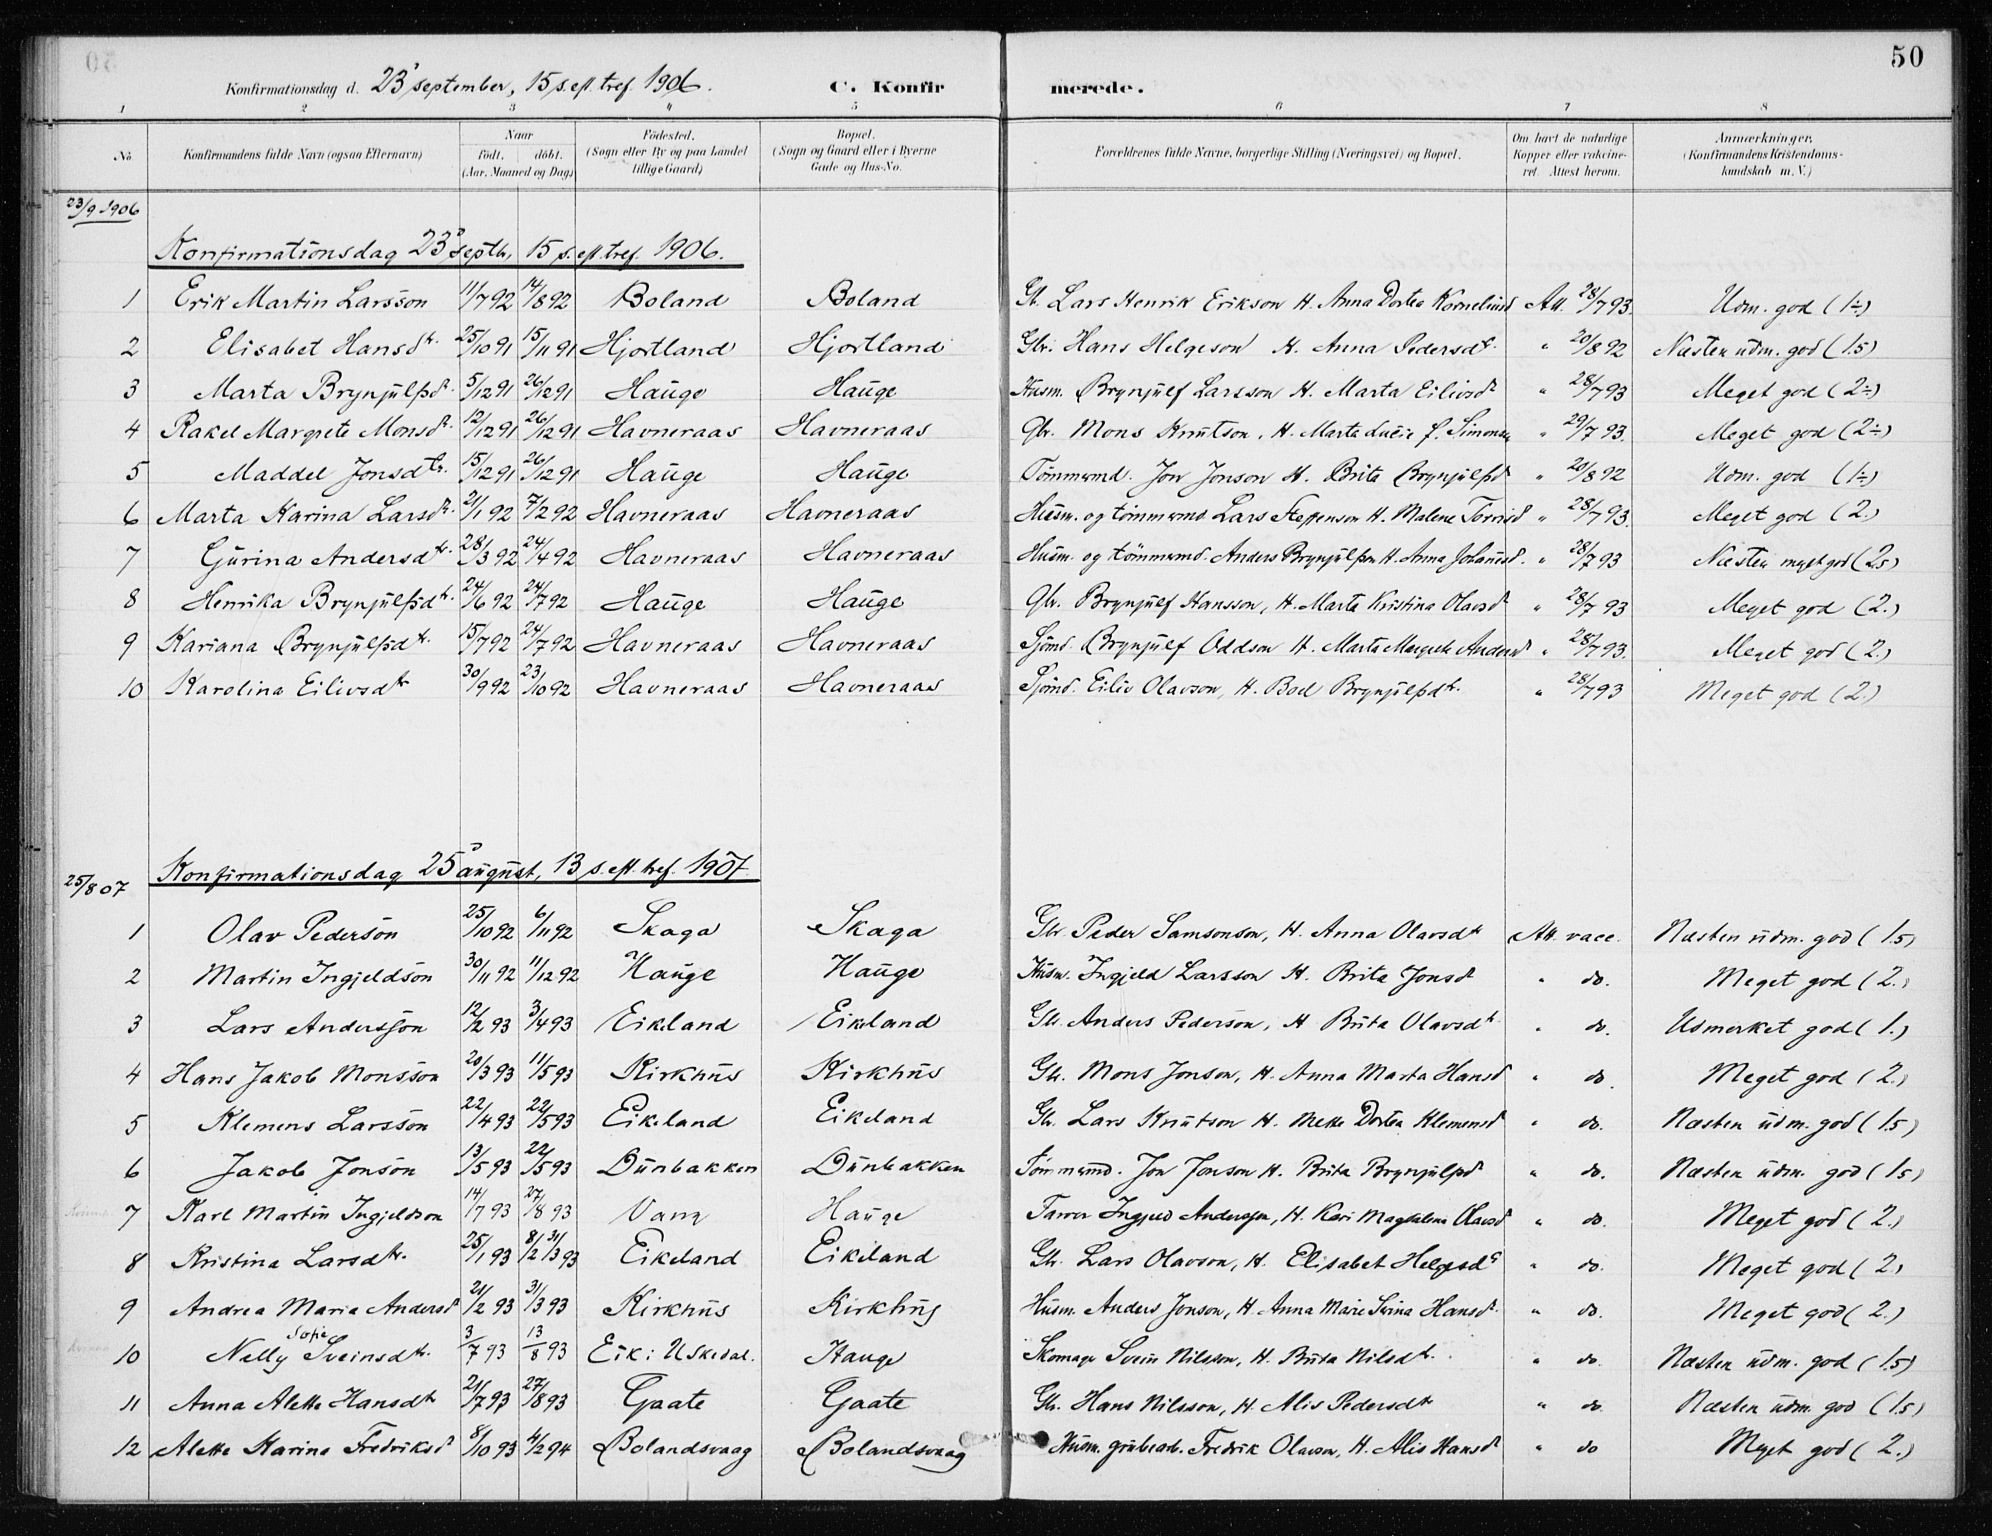 50
Konfirmationsdag d. 23' september, 15 s. eft. tref. 1906. C. Konfirmerede.
1 2 3 4 5 6 7 8
No. Konfirmandens fulde Navn (ogsaa Efternavn) Naar födt. döbt. (Aar, Maaned og Dag) Födested. (Sogn eller By og paa Landet tillige Gaard) Bopæl. (Sogn og Gaard eller i Byerne Gade og Hus-No. Forældrenes fulde Navne, borgerlige Stilling (Næringsvei) og Bopæl. Om havt de naturlige Kopper eller vakcineret. Attest herom. Anmærkninger. (Konfirmandens Kristendomskundskab m. V.)
23/9 1906
Konfirmationsdag 23' septb, 15 s. eft. tref. 1906.
1 Erik Martin Larsson 11/7 92 14/8 92 Boland Boland Gb. Lars Henrik Erikson H. Anna Dortea Kornelíusd Att. 28/7 93. Udm. god (1÷)
2 Elisabet Hansdtr. 25/10 91 15/11 91 Hjortland Hjortland Gbr. Hans Helgeson H. Anna Pedersdtr. " 20/8 92 Næsten udm. god (1.5)
3 Marta Brynjülfsd. 5/12 91 26/12 91 Haüge Haüge Husm. Brynjülf Larsson H. Marta Eilivsdt " 28/7 93 Meget god (2÷)
4 Rakel Margrete Monsdt. 12/12 91 26/12 91 Havneraas Havneraas Gbr. Mons Knütson, H. Marta Lucie f. Simonsen " 29/7 93. Meget god (2÷)
5 Maddel Jonsdtr. 15/12 91 26/12 91 Haüge Haüge Tömmermd. Jon Jonson H. Brita Brynjülfsd " 20/8 92 Udm. god (1÷)
6 Marta Karina Larsdt. 21/1 92 7/2 92 Havneraas Havneraas Hüsm. og tömmermd Lars Steffenson H. Malene Torrisd " 28/7 93. Meget god (2.)
7 Gürina Andersdtr. 28/3 92 24/4 92 Havneraas Havneraas Husm. og tömmermd. Anders Brynjülfsen H. Anna Johannesd. " 28/7 93 Næsten meget god (2.5)
8 Henrika Brynjülfsdtr. 24/6 92 24/7 92 Haüge Haüge Gbr. Brynjülf Hansson, H. Marta Kristina Olavsdt " 28/7 93 Meget god (2.)
9 Kariana Brynjülfsdtr. 15/7 92 24/7 92 Havneraas Havneraas Sjömd. Brynjülf Oddson H. Marta Margrete Andersd " 28/7 93. Meget god (2.)
10 Karolina Eilivsdtr 30/9 92 23/10 92 Havneraas Havneraas Sjömd. Eiliv Olavson, H. Boel Brynjülfsdtr. " 28/7 93 Meget god (2.)
25/8 07
Konfirmationsdag 25' aügüst, 13 s. eft. tref. 1907.
1 Olav Pederson 25/10 92 6/11 92 Skaga Skaga Gbr. Peder Samsonson, H. Anna Olavsdt Att. vacc. Næsten üdm. god (1.5)
2 Martin Ingjeldson 30/11 92 11/12 92 Haüge Haüge Hüsm. Ingjeld Larsson H. Brita Jonsdt " do. Meget god (2.)
3 Lars Andersson 12/2 93 3/4 93 Eikeland Eikeland Gbr. Anders Pederson, H Brita Olavsdt. " do. Udmerket god (1.)
4 Hans Jakob Monsson 20/3 93 11/5 93 Kirkhüs Kirkhüs Gbr. Mons Jonson, H. Anna Marta Hansd " do. Meget god (2.)
5 Klemens Larsson 22/4 93 22/5 93 Eikeland Eikeland Gbr. Lars Knütson H. Mette Dortea Klemensd " do. Næsten üdm. god (1.5)
6 Jakob Jonson 13/5 93 22/5 93 Dünbakken Dünbakken Tömmermd. Jon Jonson H. Brita Brynjülfsd " do. Næsten üdm. god (1.5)
7 Karl Martin Ingjeldson 14/7 93 27/8 93 Vang Haüge Farver Ingjeld Andersson, H. Kari Magdalena Olavsd " do. Meget god (2.)
8 Kristina Larsdtr. 25/1 93 8/2 31/3 93 Eikeland Eikeland Gbr. Lars Olavson, H. Elisabet Helgesdt " do. Meget god (2.)
9 Andrea Maria Andersdt 21/2 93 31/3 93 Kirkhüs Kirkhüs Hüsm. Anders Jonson, H. Anna Marie Serina Hansdt. " do. Meget god (2.)
10 Nelly Sofie Sveinsdtr. 3/7 93 13/8 93 Eik i Uskedal. Hauge Skomager Svein Nilsson, H. Brita Nilsdtr. " do. Næsten üdm. god (1.5)
11 Anna Alette Hansdt 21/7 93 27/8 93 Gaate Gaate Gbr. Hans Nilsson, H. Alis Pedersdtr " do. Næsten üdm. god (1.5)
12 Alette Karine Fredriksdt 8/10 93 4/2 94 Bolandsvaag Bolandsvaag Husm. grubearb. Fredrik Olavson, H. Alis Hansdt " do Meget god (2.)